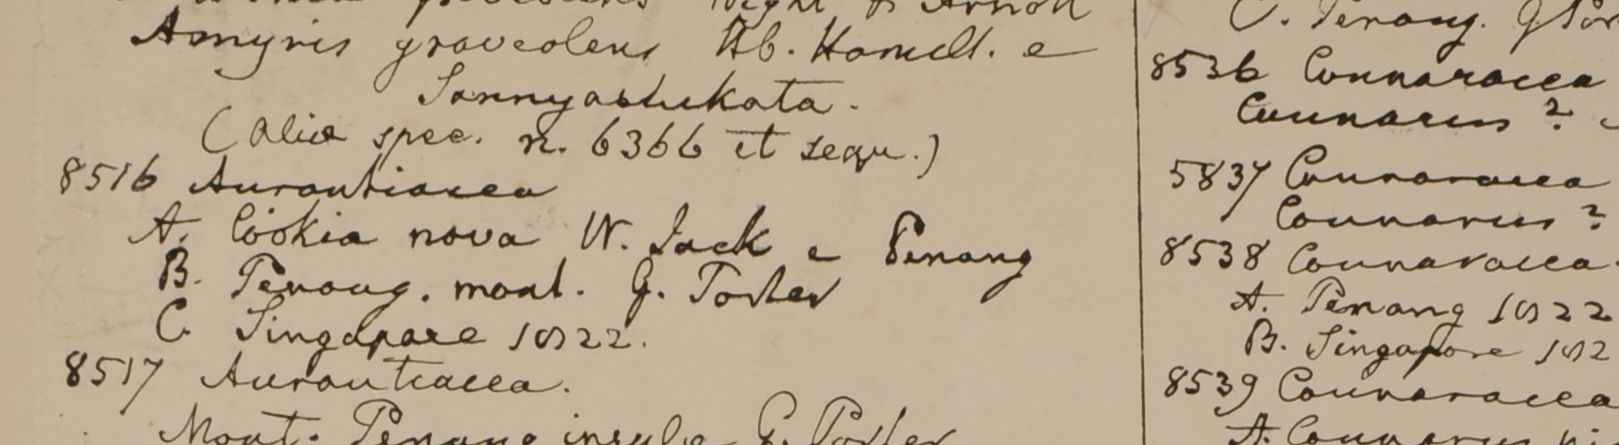 graveolens Wight & Arnott
Amyris graveolens Hb. Hamilt. e
Sannyashikata.
(Alia spec. n. 6366 et sequ.)
8516 Aurantiacea
A. Cookia nova W. Jack e Penang
B. Penang. mont. G. Porter
C Singapore 1822.
8517 Aurantiacea.
Mont. Penang insula G. Porter
C. Penang. G Por
8536 Connaracea
Connarus ?
5837 Connaracea
Connarus ?
8538 Connaracea.
A. Penang 1822
B. Singapore 182
8539 Connaracea
A. Connarus